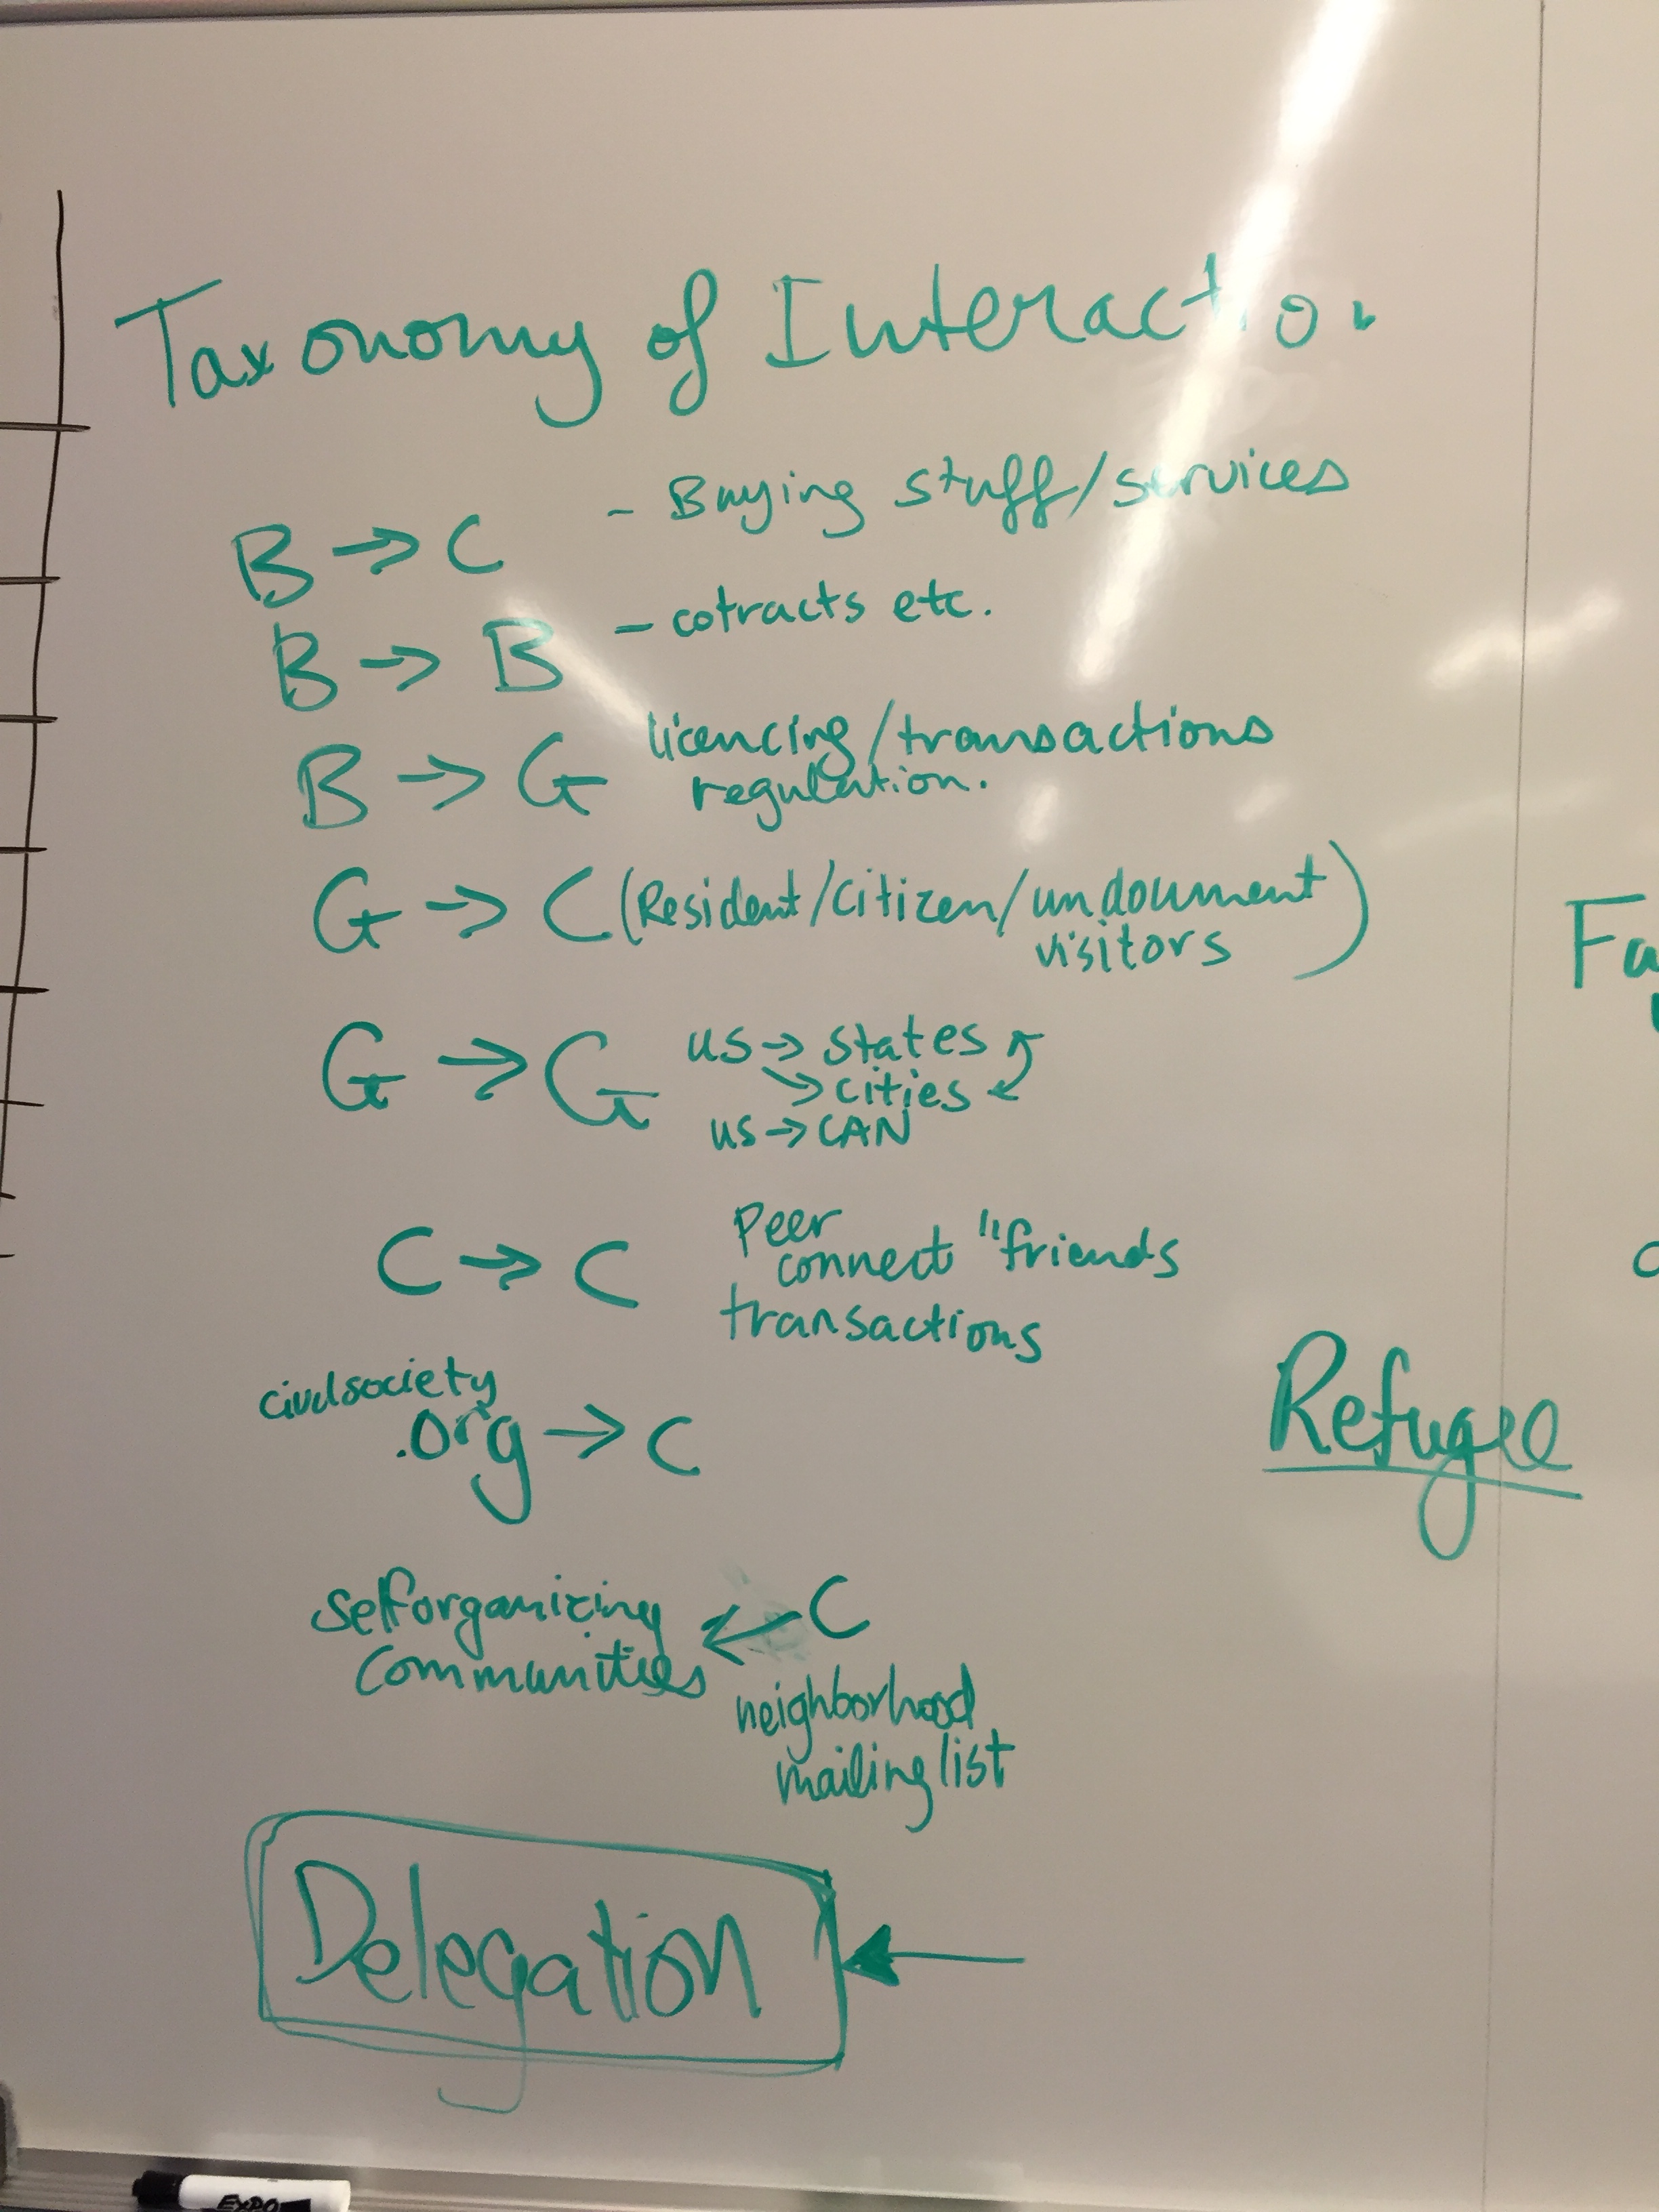 Taxonomy of Interaction
B → C - Buying stuff/services
B → B - cotracts etc.
B → G licencing/transactions
regulation.
G → C (Resident/citizen/undoument
visitors)
G → G us → states
→ cities
us → CAN
C → C Peer
connect "friends
transactions
civilsociety
.org → C
Refugee
selforganizing ← C
communities
neighborhood
mailing list
Delegation ←
EXPO